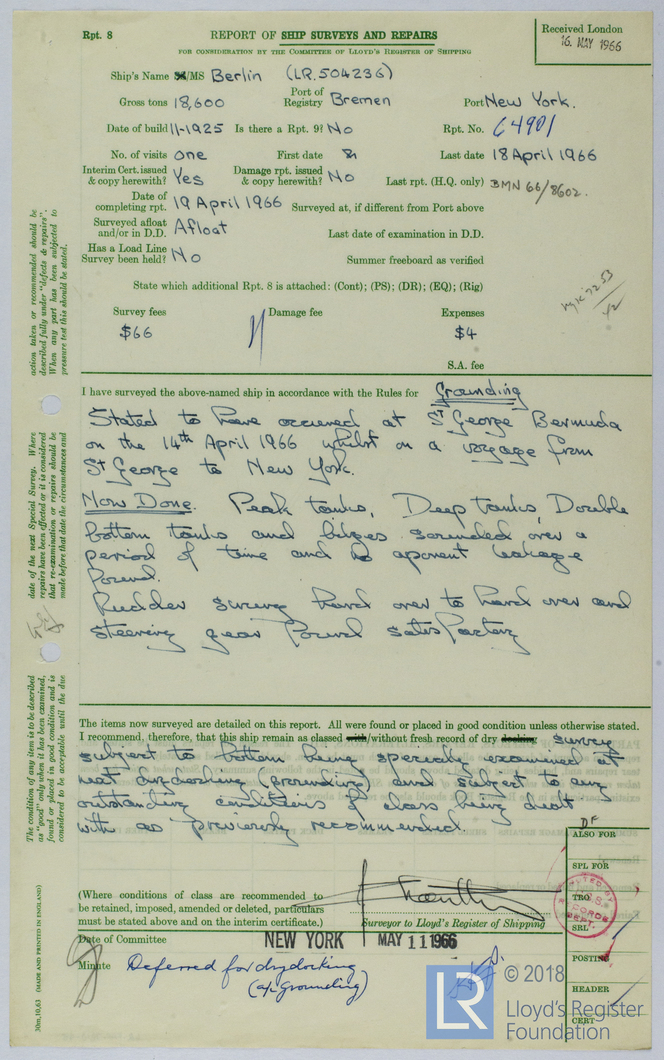 Rpt. 8
REPORT OF SHIP SURVEYS AND REPAIRS
FOR CONSIDERATION BY THE COMMITTEE OF LLOYD'S REGISTER OF SHIPPING
Received London
16. MAY 1966
Ship's Name /MS Berlin (LR.504236)
Gross tons 18,600 Port of Registry Bremen Port New York.
Date of build 11-1925 Is there a Rpt. 9? No Rpt. No. 64901
No. of visits one First date & Last date 18 April 1966
Interim Cert. issued & copy herewith? Yes Damage rpt. issued & copy herewith? No Last rpt. (H.Q. only) BMN 66/8602.
Date of completing rpt. 19 April 1966 Surveyed at, if different from Port above
Surveyed afloat and/or in D.D. Afloat Last date of examination in D.D.
Has a Load Line Survey been held? No Summer freeboard as verified
State which additional Rpt. 8 is attached: (Cont); (PS); (DR); (EQ); (Rig)
Survey fees Damage fee Expenses
$66 $4
S.A. fee
I have surveyed the above-named ship in accordance with the Rules for Grounding
Stated to have occured at St George Bermuda
on the 14th April 1966 whilst on a voyage from
St George to New York.
Now Done. Peak tanks, Deep tanks, Double
bottom tanks and bilges sounded over a
period of time and no aparent leakage
found.
Rudder swung hard over to hard over and
steering gear found satisfactory
The items now surveyed are detailed on this report. All were found or placed in good condition unless otherwise stated.
I recommend, therefore, that this ship remain as classed with/without fresh record of dry docking survey
subject to bottom being specially examined at
next drydocking (grounding) and subject to any
outstanding conditions of class being dealt
with as previously recommended.
(Where conditions of class are recommended to
be retained, imposed, amended or deleted, particulars
must stated above and on the interim certificate.)
Surveyor to Lloyd's Register of Shipping
Date of Committee NEW YORK MAY 11 1966
Minute Deferred for drydocking
(a/c Grounding)
ALSO FOR
SPL FOR
TRO
SRL
POSTING
HEADER
CERT
action taken or recommended should be
described fully under "defects & repairs".
When any part has been subjected to
pressure test this should be stated.
date of the next Special Survey. Where
repairs have been effected or it is considered
that re-examination or repairs should be
made before that date the circumstances and
The condition of any item is to be described
as "good" only when it has been examined,
found or placed in good condition and is
considered to be acceptable until the due
30m,10,63 (MADE AND PRINTED IN ENGLAND)
LR
© 2018
Lloyd's Register
Foundation